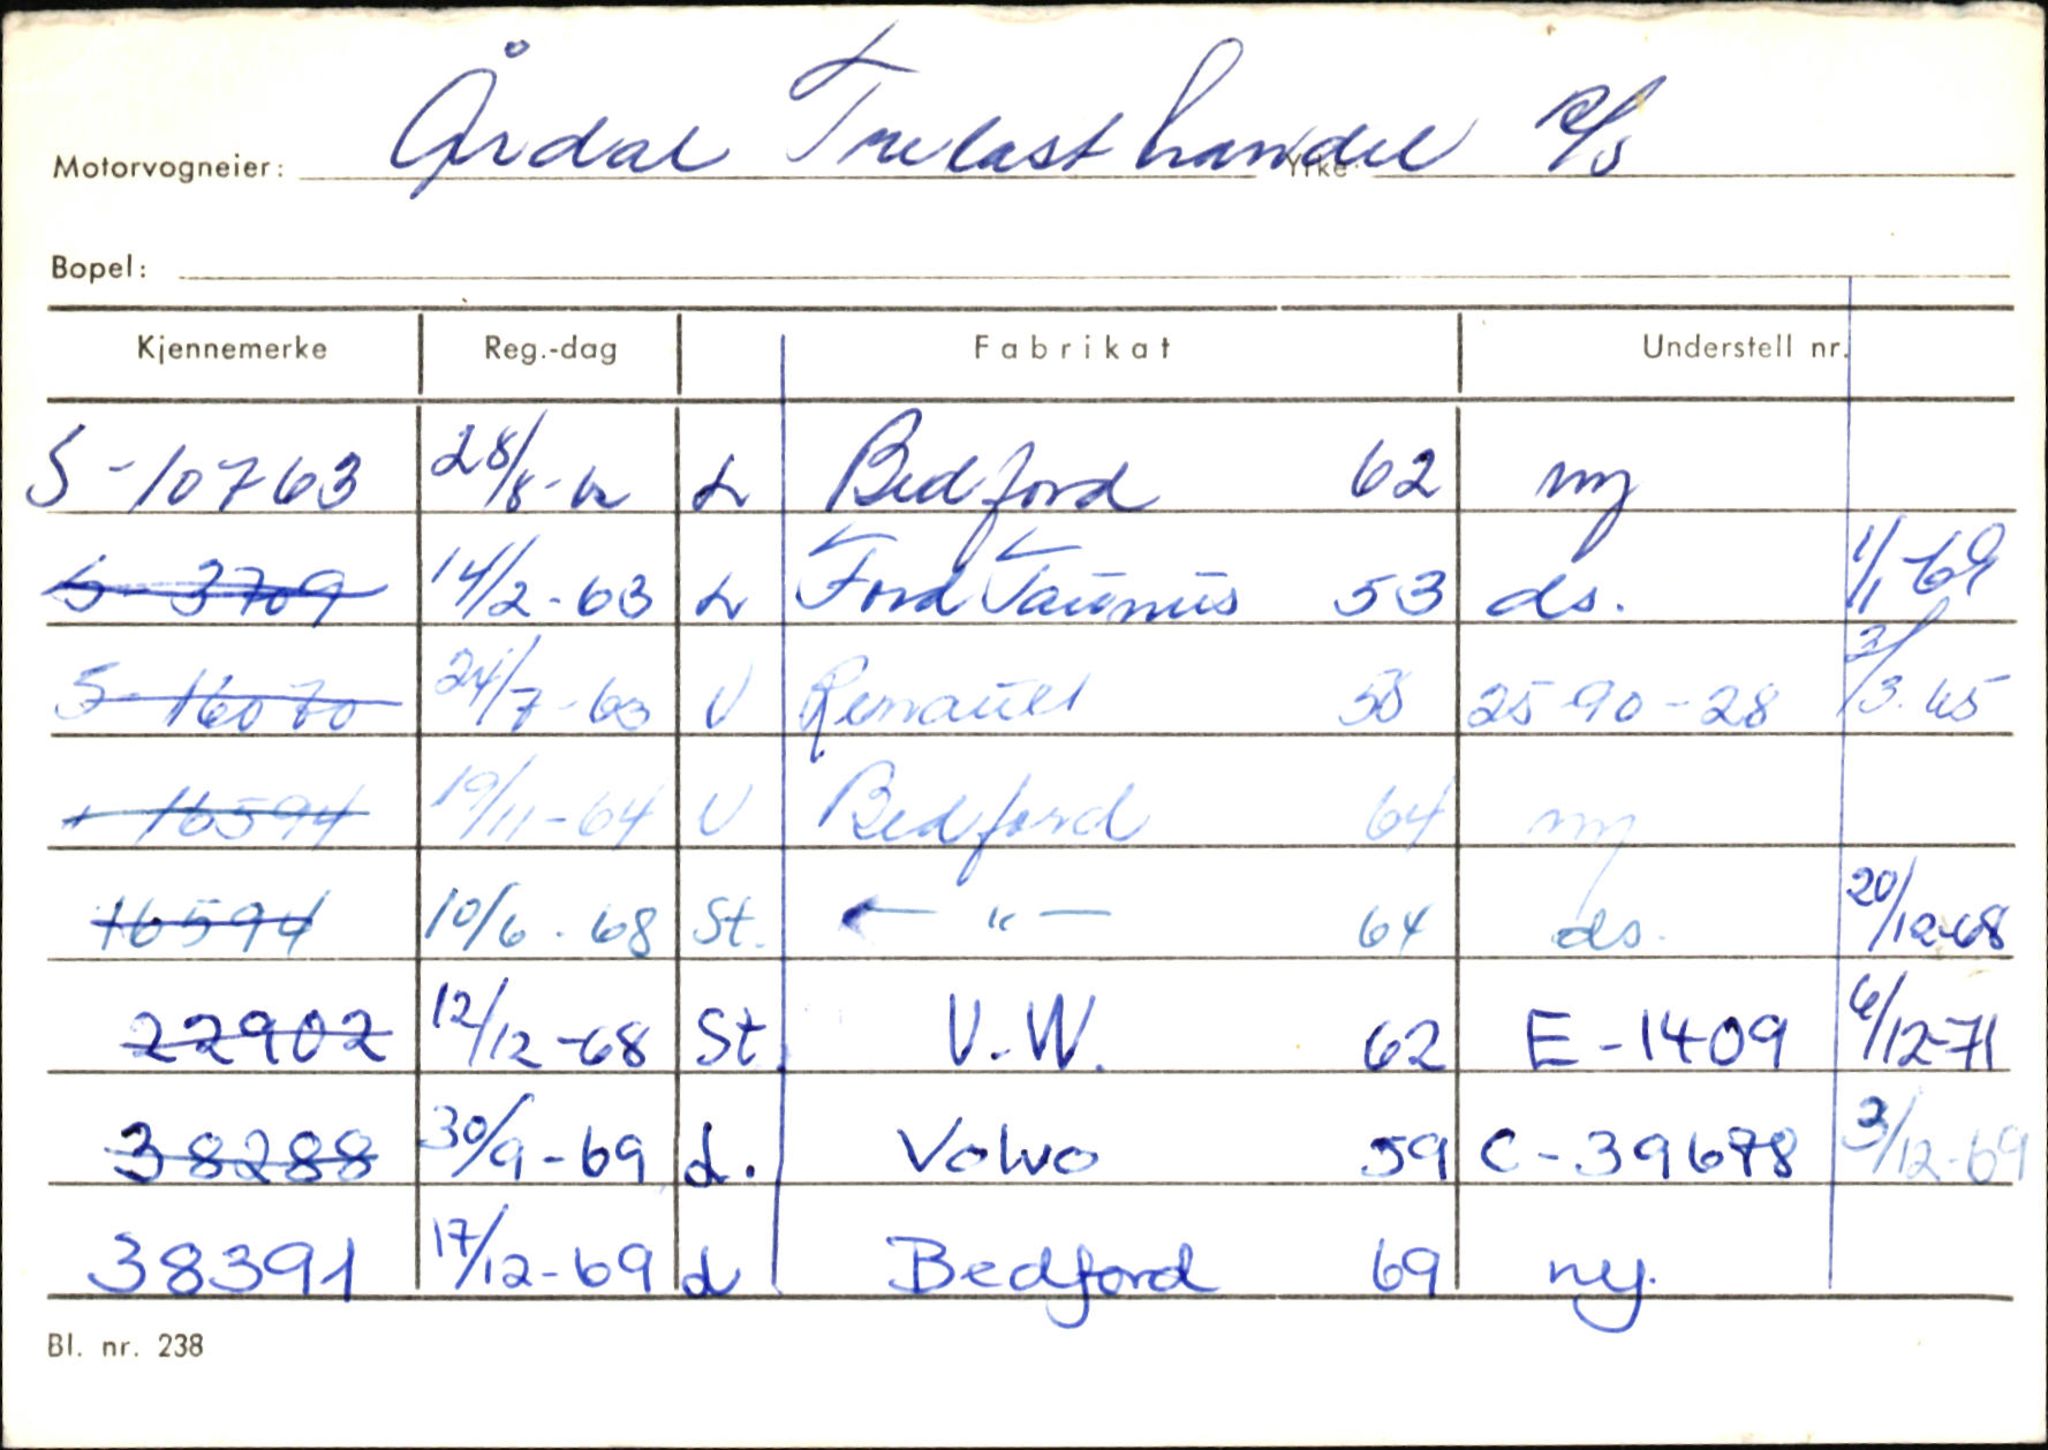 Motorvogneier: Årdal Trelasthandel Yrke A/S
Bopel:
Kjennemerke Reg.-dag Fabrikat Understell nr.
S-10763 28/8-62 L Bedford 62 ny
S-3709 14/2-63 L Ford Taunus 53 ds. 1/1-69
S-16070 24/7-63 V Renault 25-90-28 2/3.65
" 16594 19/11-64 V Bedford 64 ny
16594 10/6-68 St. — " — 64 ds. 20/12-68
22902 12/12-68 St. V.W. 62 E-1409 6/12-71
38288 30/9-69 L. Volvo 59 C-39678 3/12-69
38391 17/12-69 L Bedford 69 ny.
Bl. nr. 238